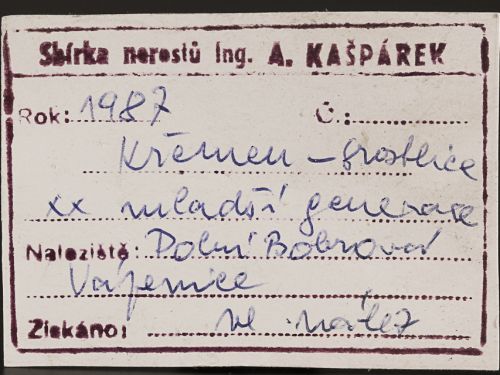 Sbírka nerostů Ing. A. KAŠPÁREK
Rok: 1987 Č.:
Křemen - srostlice
xx mladší generace
Naleziště: Dolní Bobrová
Vápenice
Získáno: vl. nález